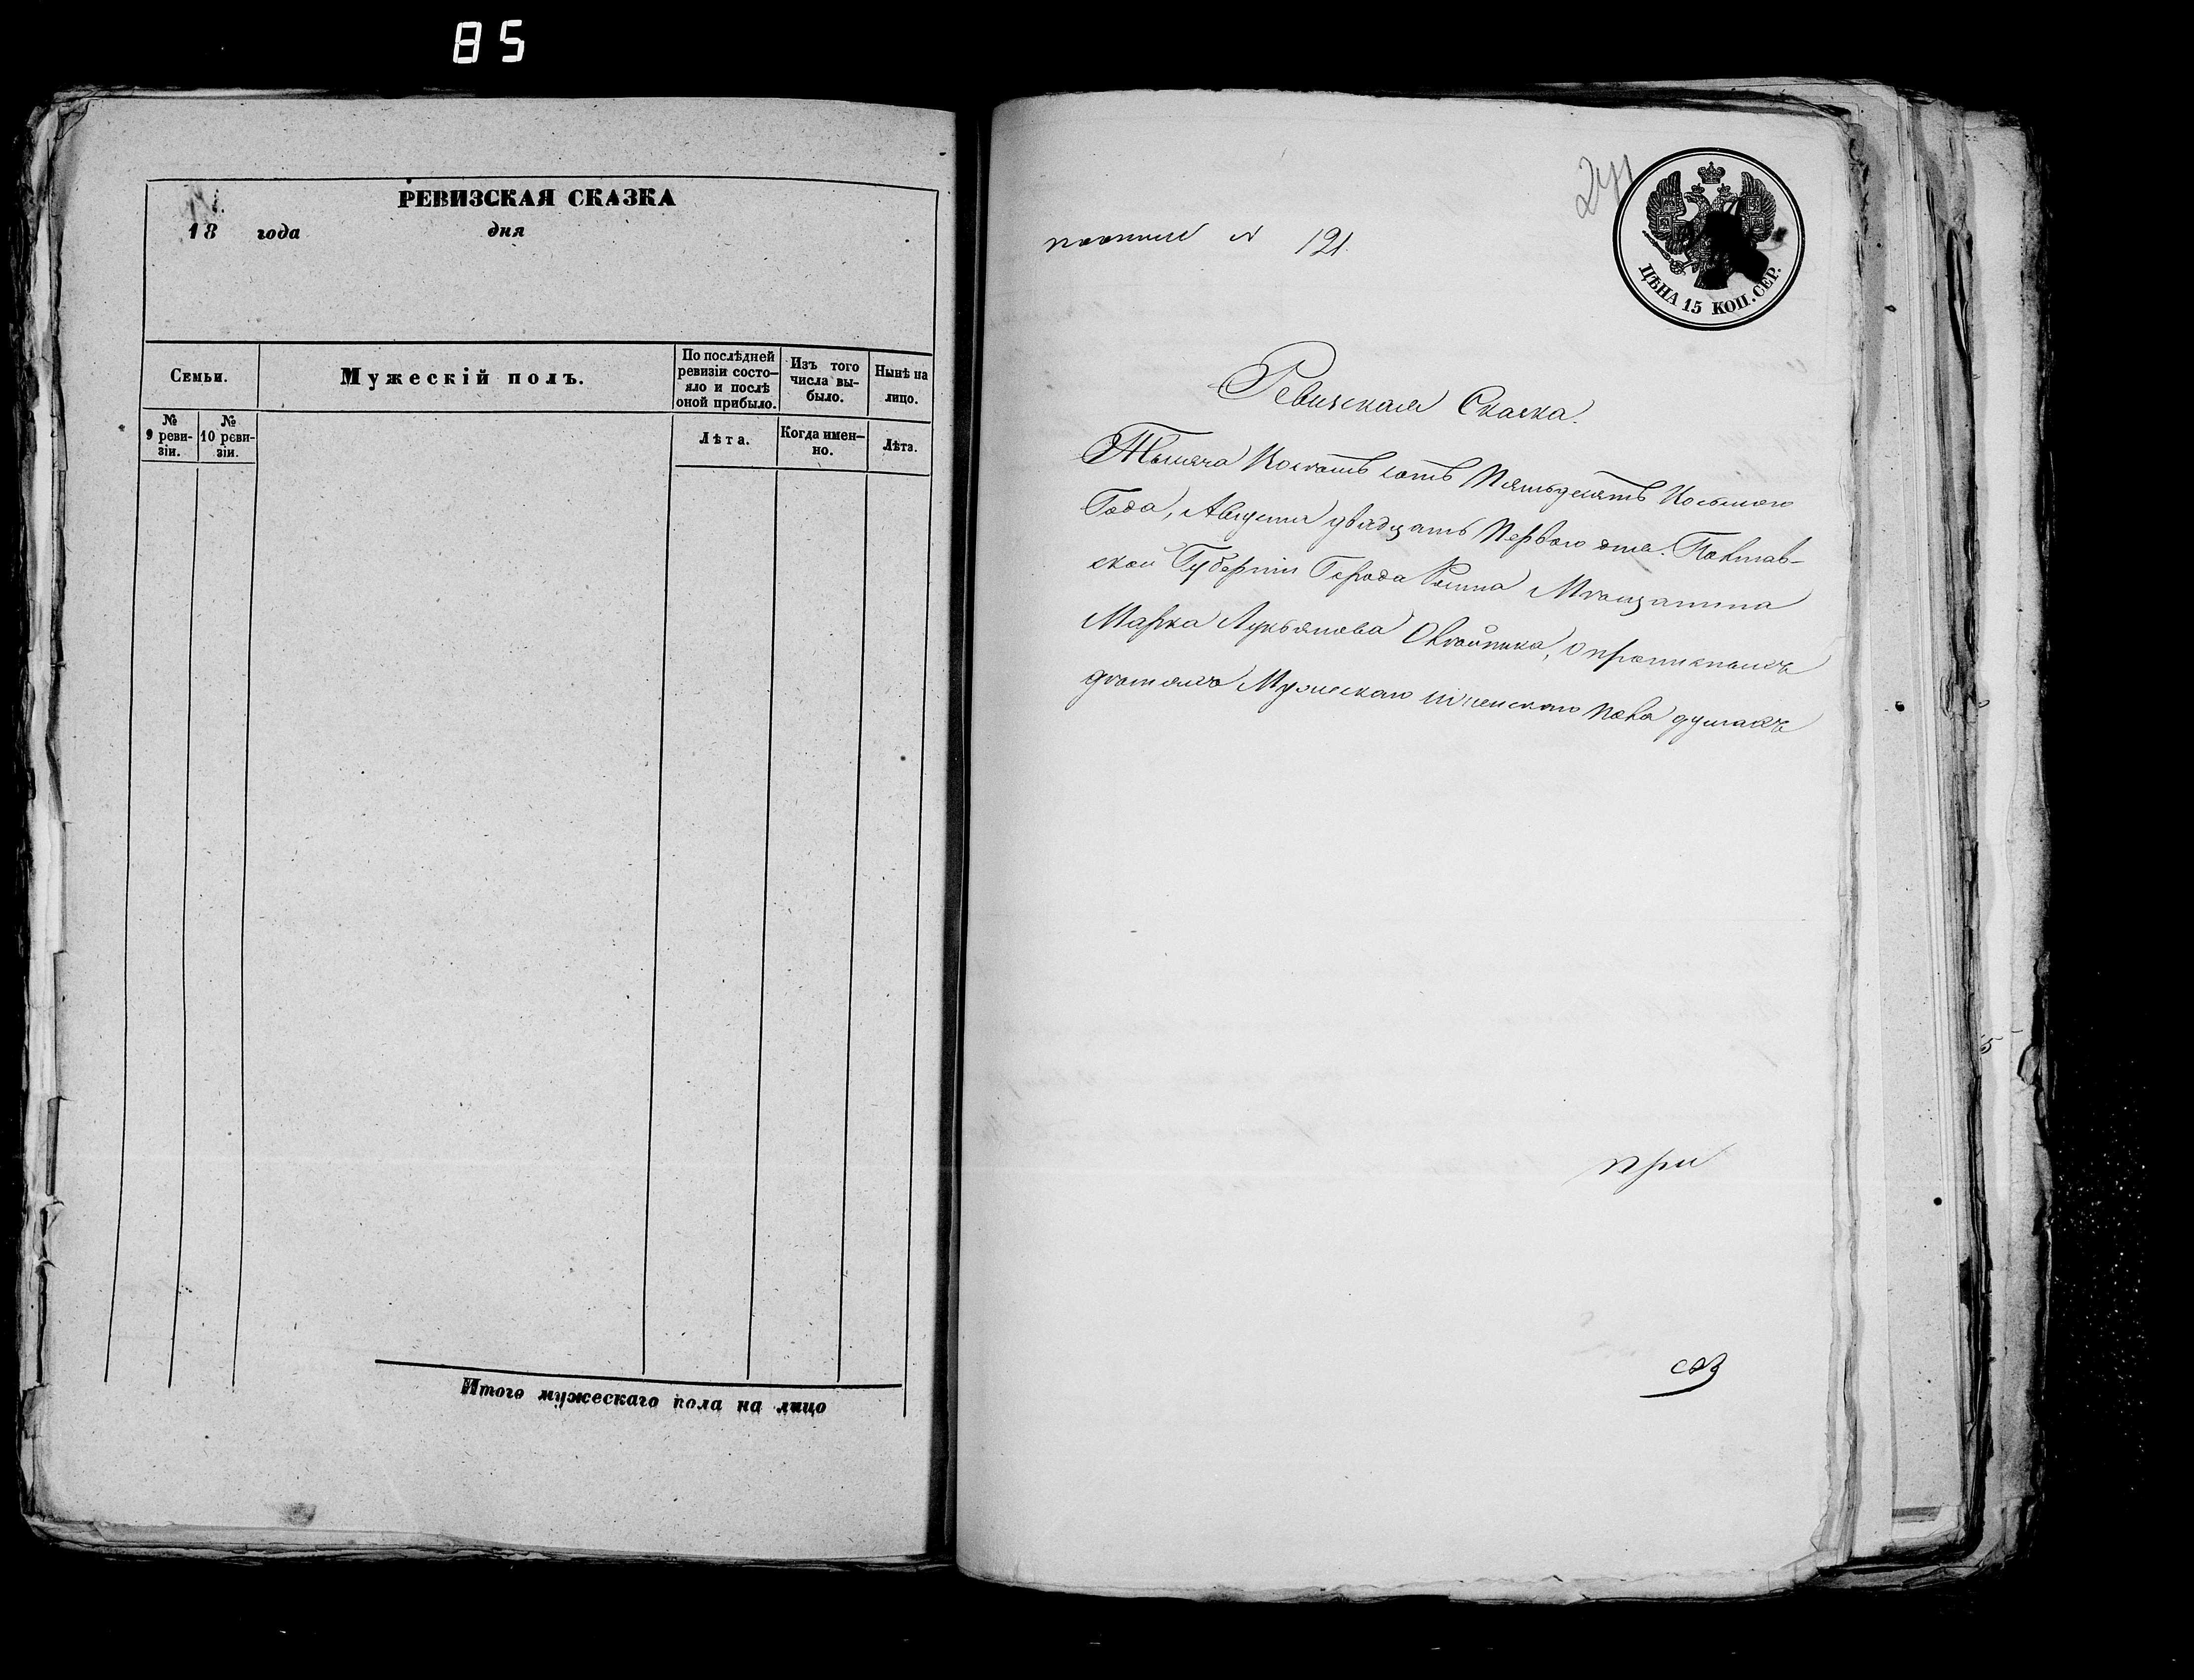 85
РЕВИЗСКАЯ СКАЗКА
18 года дня
Семьи.
Мужескій полъ.
По послѣдней
ревизіи состо-
яло и послѣ
оной прибыло.
Изъ того
числа вы-
было.
Нынѣ на
лицо.
№
9 реви-
зіи.
№
10 реви-
зіи.
Лѣта.
Когда имен-
но.
Лѣта.
Итого мужескаго пола на лицо
№ 121.
ЦѢНА 15 КОП. СЕР.
Ревизская Сказка.
Тысяча Восѣмь сотъ Пятьдесятъ Восьмого
Года, Августа двадцать Первого дня. Полтав-
ской Губерніи Города Ромна Мѣщанина
Марка Лукьянова Олѣйника, о прописныхъ
дѣтяхъ Мужескаго и женскаго пола душахъ
при